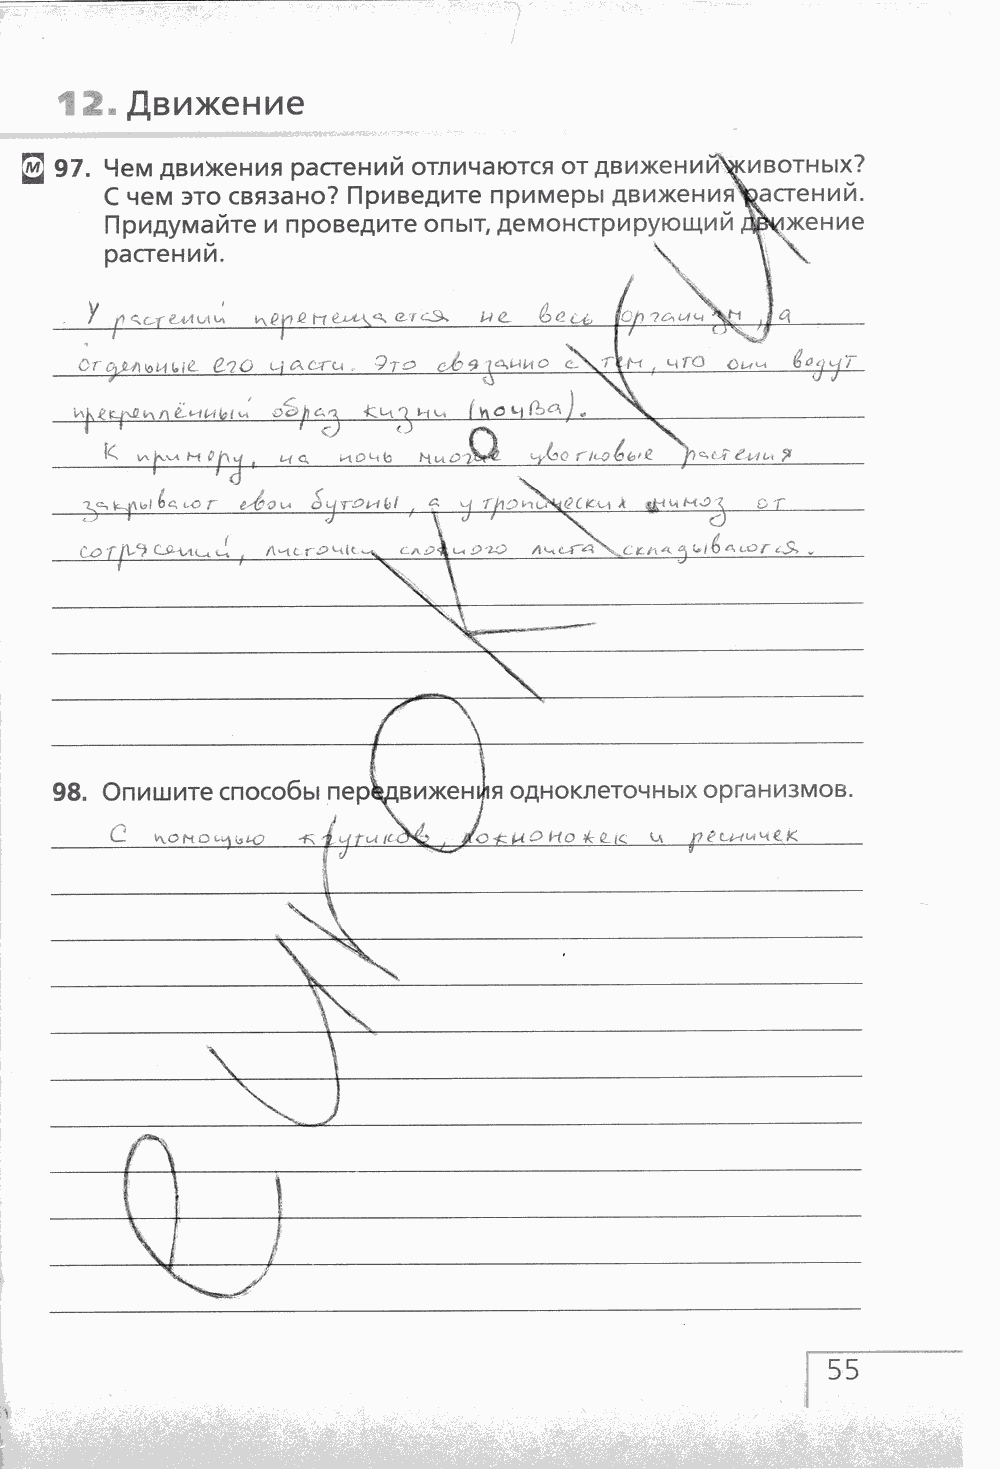 12. Движение
М 97. Чем движения растений отличаются от движений животных?
С чем это связано? Приведите примеры движения растений.
Придумайте и проведите опыт, демонстрирующий движение
растений.
У растений перемещается не весь организм, а
отдельные его части. Это связанно с тем, что они ведут
прекреплённый образ жизни (почва).
К примеру, на ночь многие цветковые растения
закрывают свои бутоны, а у тропических мимоз от
сотрясений, листочки сложного листа складываются.
98. Опишите способы передвижения одноклеточных организмов.
С помощью жгутиков, ложноножек и ресничек
55